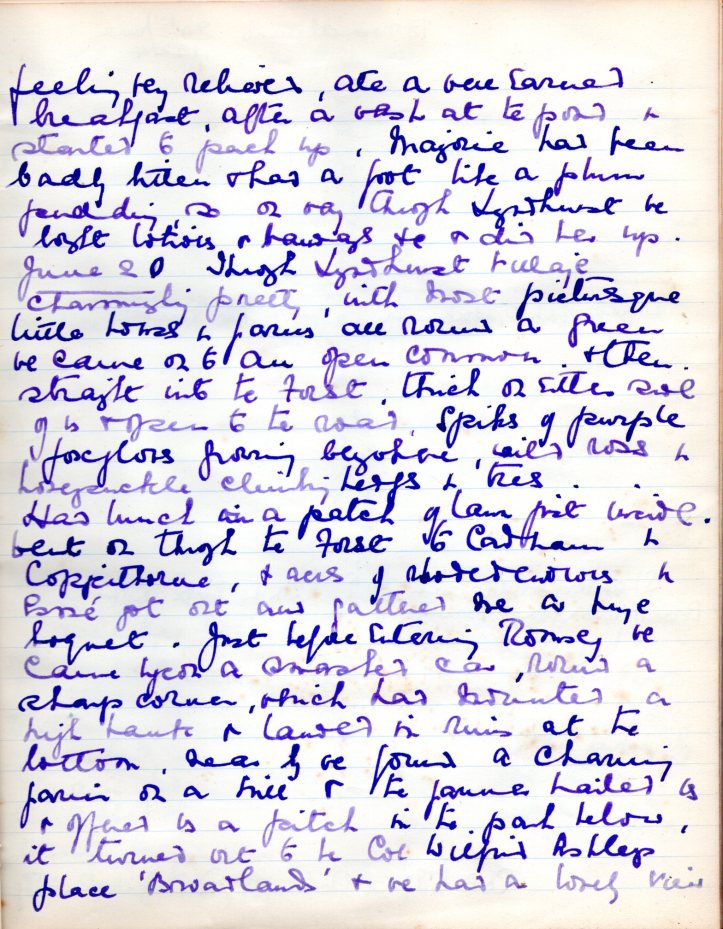 feeling very relieved, ate a well earned
breakfast, after a wash at the pond &
started to pack up. Marjorie had been
badly bitten & had a foot like a plum
pudding, so on way through Lyndhurst we
bought lotions & bandages etc & did her up.
June 20 Through Lyndhurst village
charmingly pretty, with most picturesque
little houses & farms all round a green
we came on to an open common & then
straight into the Forest, thick on either side
of us & open to the road. Spikes of purple
foxgloves growing everywhere, wild roses &
honeysuckle climbing hedges & trees.
Had lunch in a patch of lawn just inside.
Went on through the Forest to Cadnam &
Copythorne, & acres of rhododendrons &
Essé got out and gathered me a huge
boquet. Just before entering Romsey we
came upon a smashed car, round a
sharp corner, which had mounted a
high bank & landed in ruins at the
bottom. Near by we found a charming
farm on a hill & the farmer hailed us
& offered us a pitch in the park below,
it turned out to be Col Wilfrid Ashleys
place 'Broadlands' & we had a lovely view